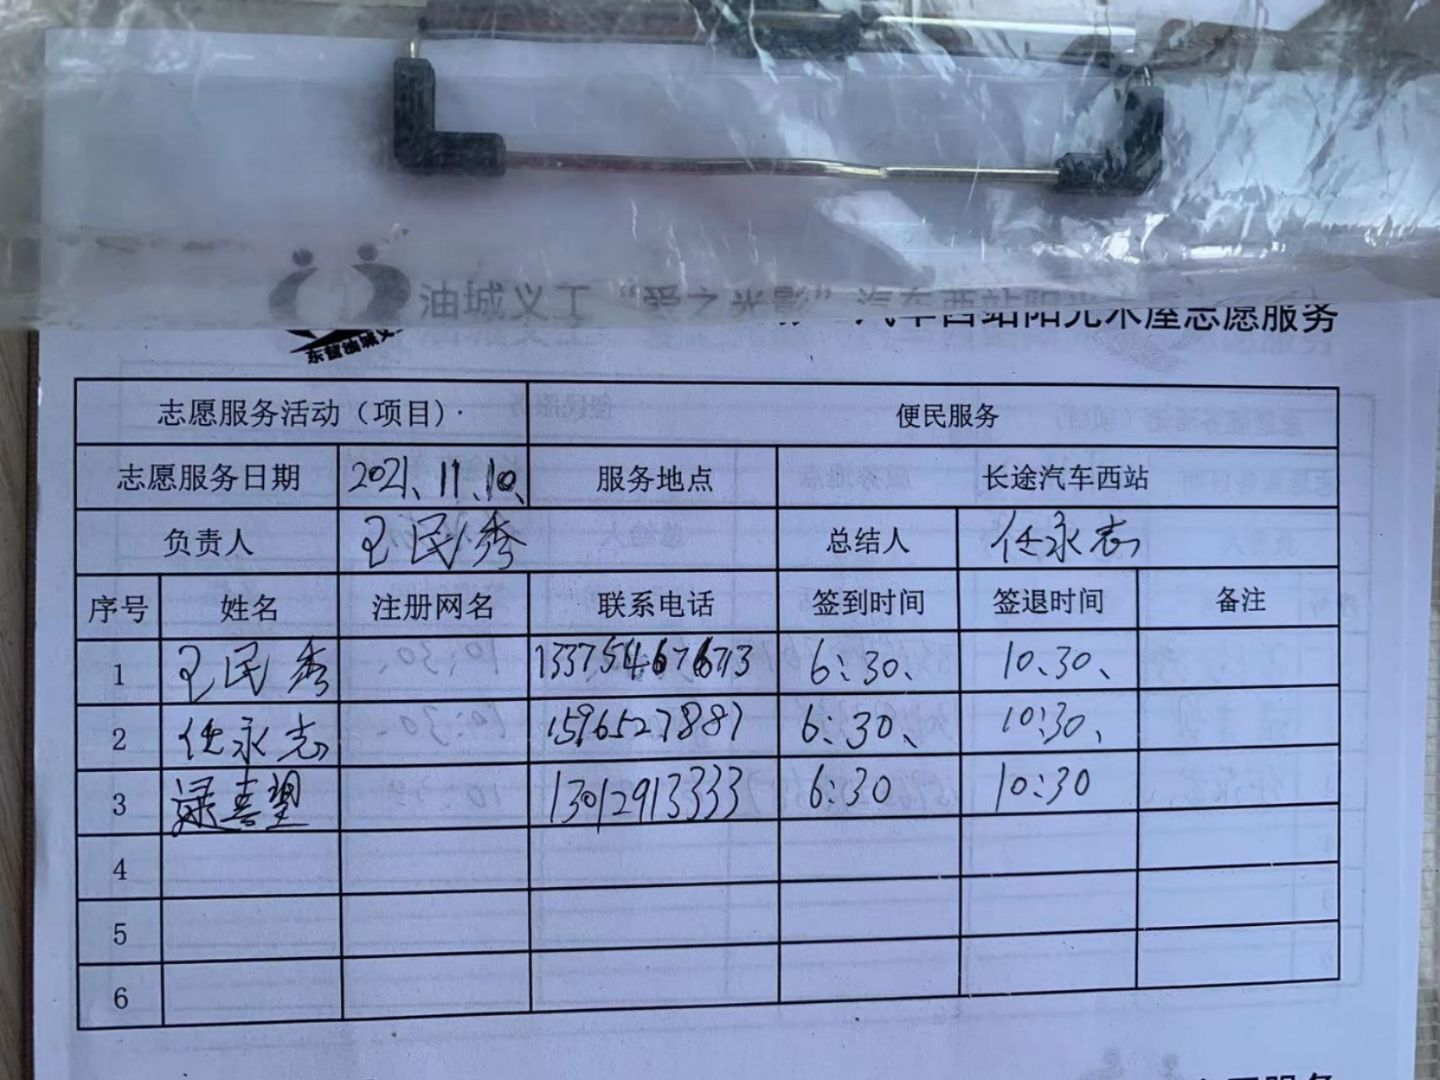 油城义工“爱之光影”汽车西站阳光木屋志愿服务
东营油城义
志愿服务活动（项目）· 便民服务
志愿服务日期 2021、11、10、 服务地点 长途汽车西站
负责人 王民秀 总结人 任永志
序号 姓名 注册网名 联系电话 签到时间 签退时间 备注
1 王民秀 6:30、 10、30、
2 任永志 1596527887 6:30、 10:30、
3 喜望 13012913333 6:30 10:30
4
5
6